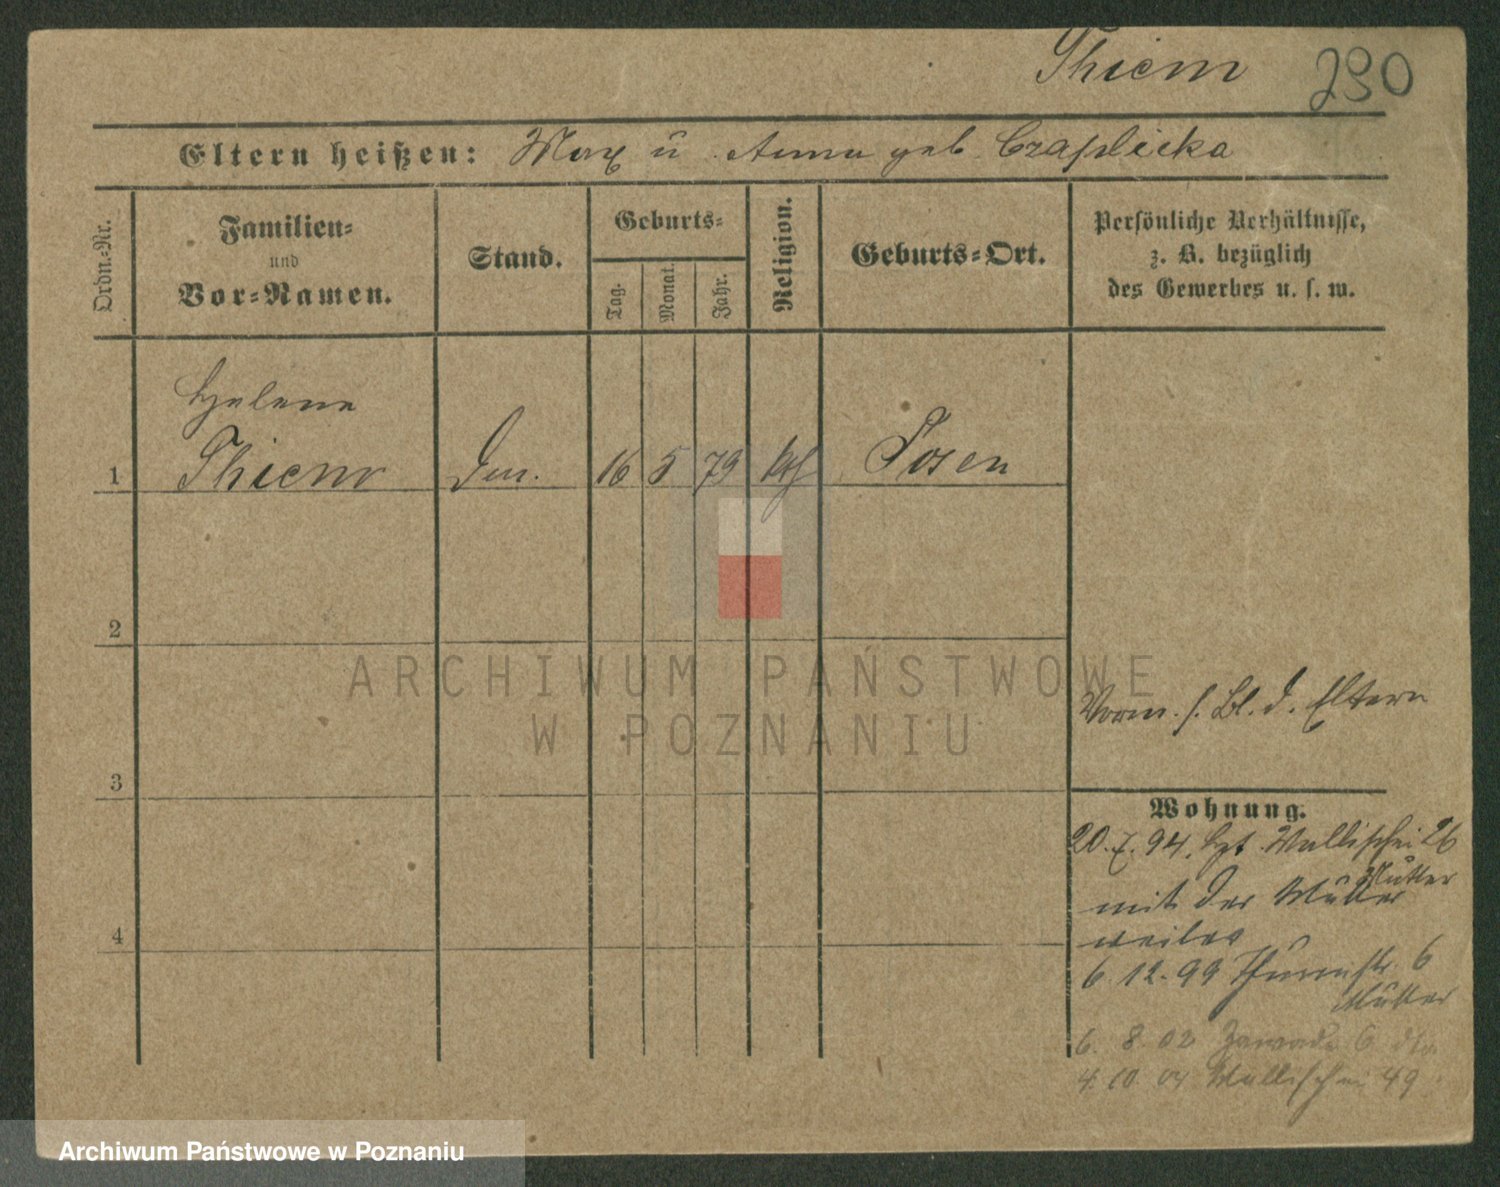 Thiem 290
Eltern heißen: Max u Anna geb. Czaplicka
Ordn.-Nr.
Familien-
und
Vor-Namen.
Stand.
Geburts-
Tag.
Monat.
Jahr.
Religion.
Geburts-Ort.
Persönliche Verhältnisse,
z. B. bezüglich
des Gewerbes u. s. w.
Helene
1 Thiem 16 5 79 kth Posen
2
3
4
ARCHIWUM PAŃSTWOWE
W POZNANIU
Vorm. s. Bl. d. Eltern
Wohnung.
20. 7. 94. Wallischei 26
Mutter
mit der Mutter
6. 12. 99 Thurmstr. 6
Mutter
6. 8. 02 Zawade 6 dto
4. 10 04 Wallischei 49
Archiwum Państwowe w Poznaniu